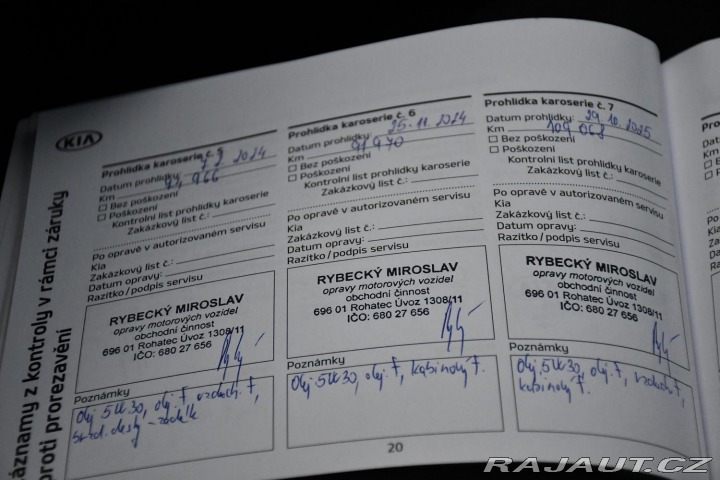 KIA
áznamy z kontroly v rámci záruky
proti prorezavění
Prohlídka karoserie č. 5
Datum prohlídky: 2024
Km
Bez poškození
Poškození
Kontrolní list prohlídky karoserie
Zakázkový list č.:
Po opravě v autorizovaném servisu
Kia
Zakázkový list č.:
Datum opravy:
Razítko / podpis servisu
RYBECKÝ MIROSLAV
opravy motorových vozidel
obchodní činnost
696 01 Rohatec Úvoz 1308/11
IČO: 680 27 656
Poznámky
Olej 5W30, olej. f, vzduch. f,
Prohlídka karoserie č. 6
Datum prohlídky: 25. 11. 2024
Km 97 970
Bez poškození
Poškození
Kontrolní list prohlídky karoserie
Zakázkový list č.:
Po opravě v autorizovaném servisu
Kia
Zakázkový list č.:
Datum opravy:
Razítko / podpis servisu
RYBECKÝ MIROSLAV
opravy motorových vozidel
obchodní činnost
696 01 Rohatec Úvoz 1308/11
IČO: 680 27 656
Poznámky
Olej 5W30, olej. f, kabinový f.
Prohlídka karoserie č. 7
Datum prohlídky: 29. 10. 2025
Km 109 068
Bez poškození
Poškození
Kontrolní list prohlídky karoserie
Zakázkový list č.:
Po opravě v autorizovaném servisu
Kia
Zakázkový list č.:
Datum opravy:
Razítko / podpis servisu
RYBECKÝ MIROSLAV
opravy motorových vozidel
obchodní činnost
696 01 Rohatec Úvoz 1308/11
IČO: 680 27 656
Poznámky
Olej 5W30, olej. f, vzduch. f,
kabinový f.
20
RAJAUT.CZ